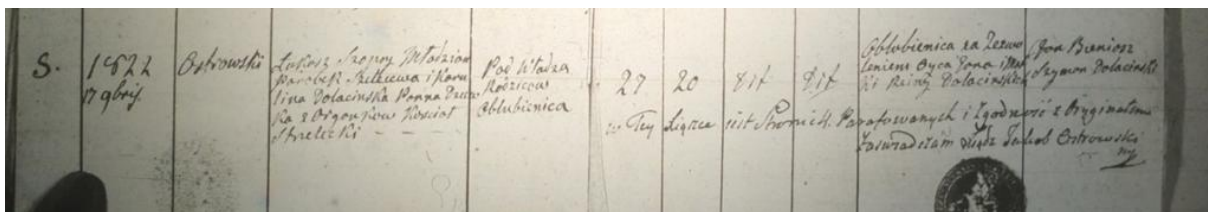 S.
1822
17 9bris
Ostrowski
Łukasz Szopos Młodzian
Parobek i Karo
lina Dolacinska Panna Dziew
ka z Kosciół
Strzelecki
Pod Władzą
Rodziców
Oblubienica
27
20
dit
dit
Oblubienica za Zezwo
leniem Oyca Jana i Mat
ki Dolacinskich
Jan Bieniosz
Szymon Dolacinski
w Tey Xiędze jest Stronic 4. Parafowanych i Zgodność z Oryginałem
Zaświadczam Xiądz Jakob Ostrowski